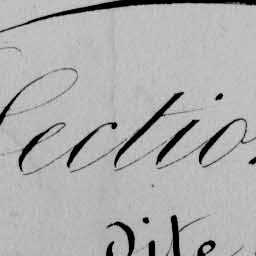 Section
dite